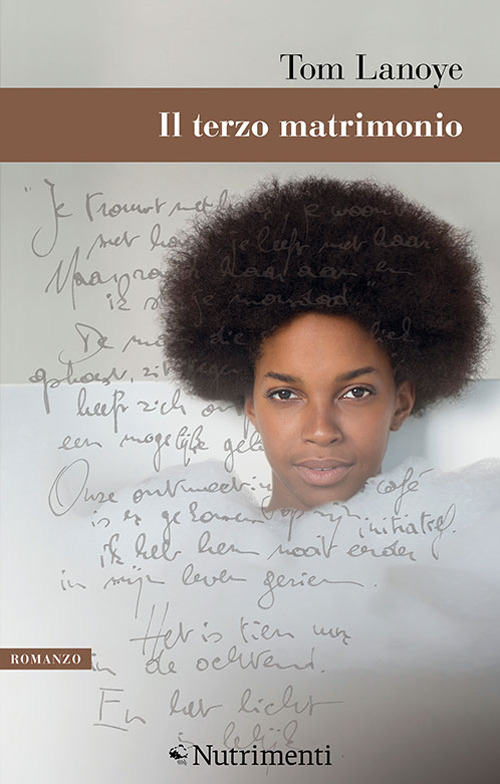 Tom Lanoye
Il terzo matrimonio
"Je trouwt met haar, je woont
met haar, je leeft met haar.
Maar raak haar aan en
ik sla je morsdood."
De man die
ophoest, zit tegen
heeft zich
een mogelijke
Onze ontmoeting café
is er gekomen op zijn initiatief.
ik heb hem nooit eerder
in mijn leven gezien.
Het is tien uur
in de ochtend.
En het licht
is lelijk
ROMANZO
Nutrimenti